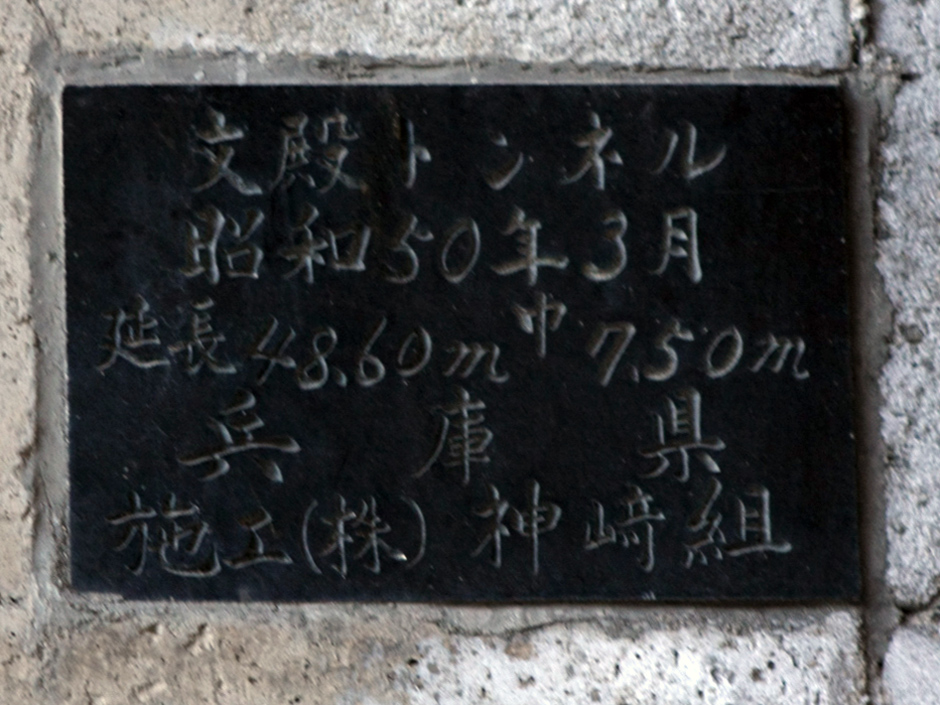 文殿トンネル
昭和50年3月
延長48.60m 巾7.50m
兵庫県
施工(株)神崎組